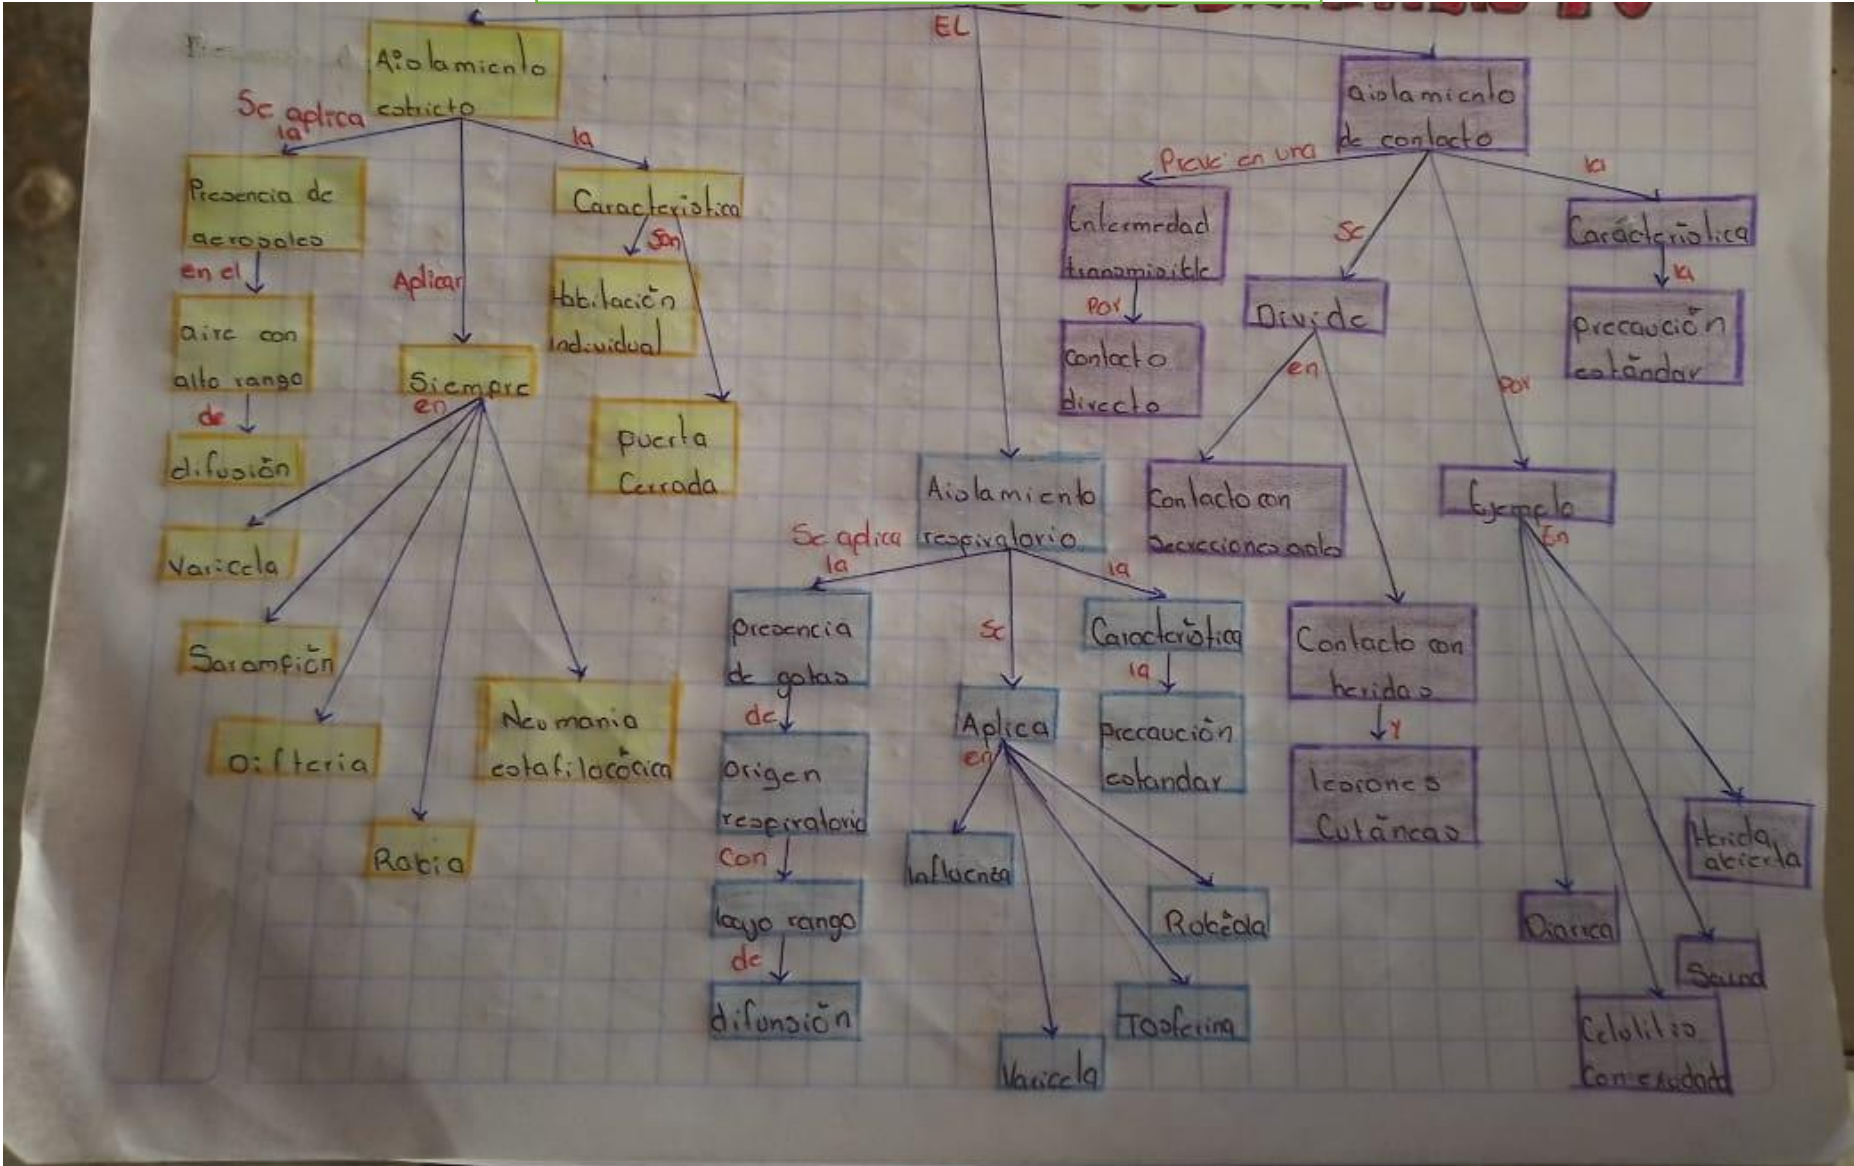 EL
Aislamiento
estricto
Se aplica
la
Presencia de
aerosoles
en el
aire con
alto rango
de
difusión
Aplicar
Siempre
en
Varicela
Sarampión
Difteria
Rabia
Neumania
estafilocócica
la
Caracteristica
Son
Habitación
individual
puerta
Cerrada
Aislamiento
respiratorio
Se aplica
la
presencia
de gotas
de
origen
respiratorio
Con
bajo rango
de
difunsión
Se
Aplica
en
Influenza
Varicela
Tosferina
Robéola
la
Característica
la
precaución
estandar
aislamiento
de contacto
Preve en una
Enfermedad
transmisible
Por
contacto
directo
Se
Divide
en
Contacto con
secreciones
Contacto con
heridas
Y
lesiones
Cutáneas
Por
Ejemplo
En
Diarrea
Celulitis
Con exudado
Herida
abierta
la
Carácterística
la
precaución
estándar